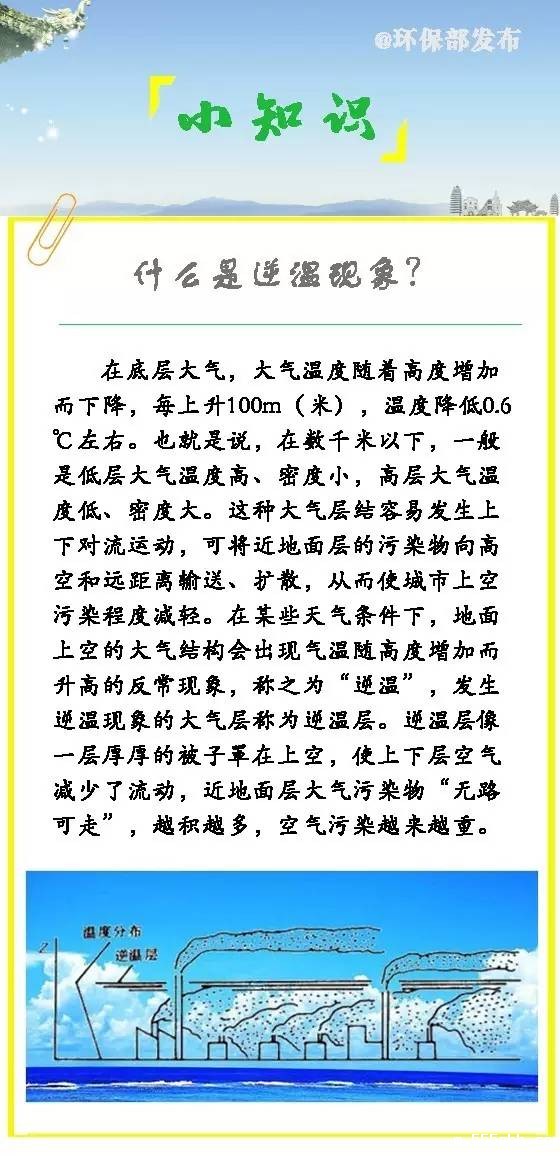 @环保部发布
「小知识」
什么是逆温现象？
在底层大气，大气温度随着高度增加
而下降，每上升100m（米），温度降低0.6
℃左右。也就是说，在数千米以下，一般
是低层大气温度高、密度小，高层大气温
度低、密度大。这种大气层结容易发生上
下对流运动，可将近地面层的污染物向高
空和远距离输送、扩散，从而使城市上空
污染程度减轻。在某些天气条件下，地面
上空的大气结构会出现气温随高度增加而
升高的反常现象，称之为“逆温”，发生
逆温现象的大气层称为逆温层。逆温层像
一层厚厚的被子罩在上空，使上下层空气
减少了流动，近地面层大气污染物“无路
可走”，越积越多，空气污染越来越重。
温度分布
Z
逆温层